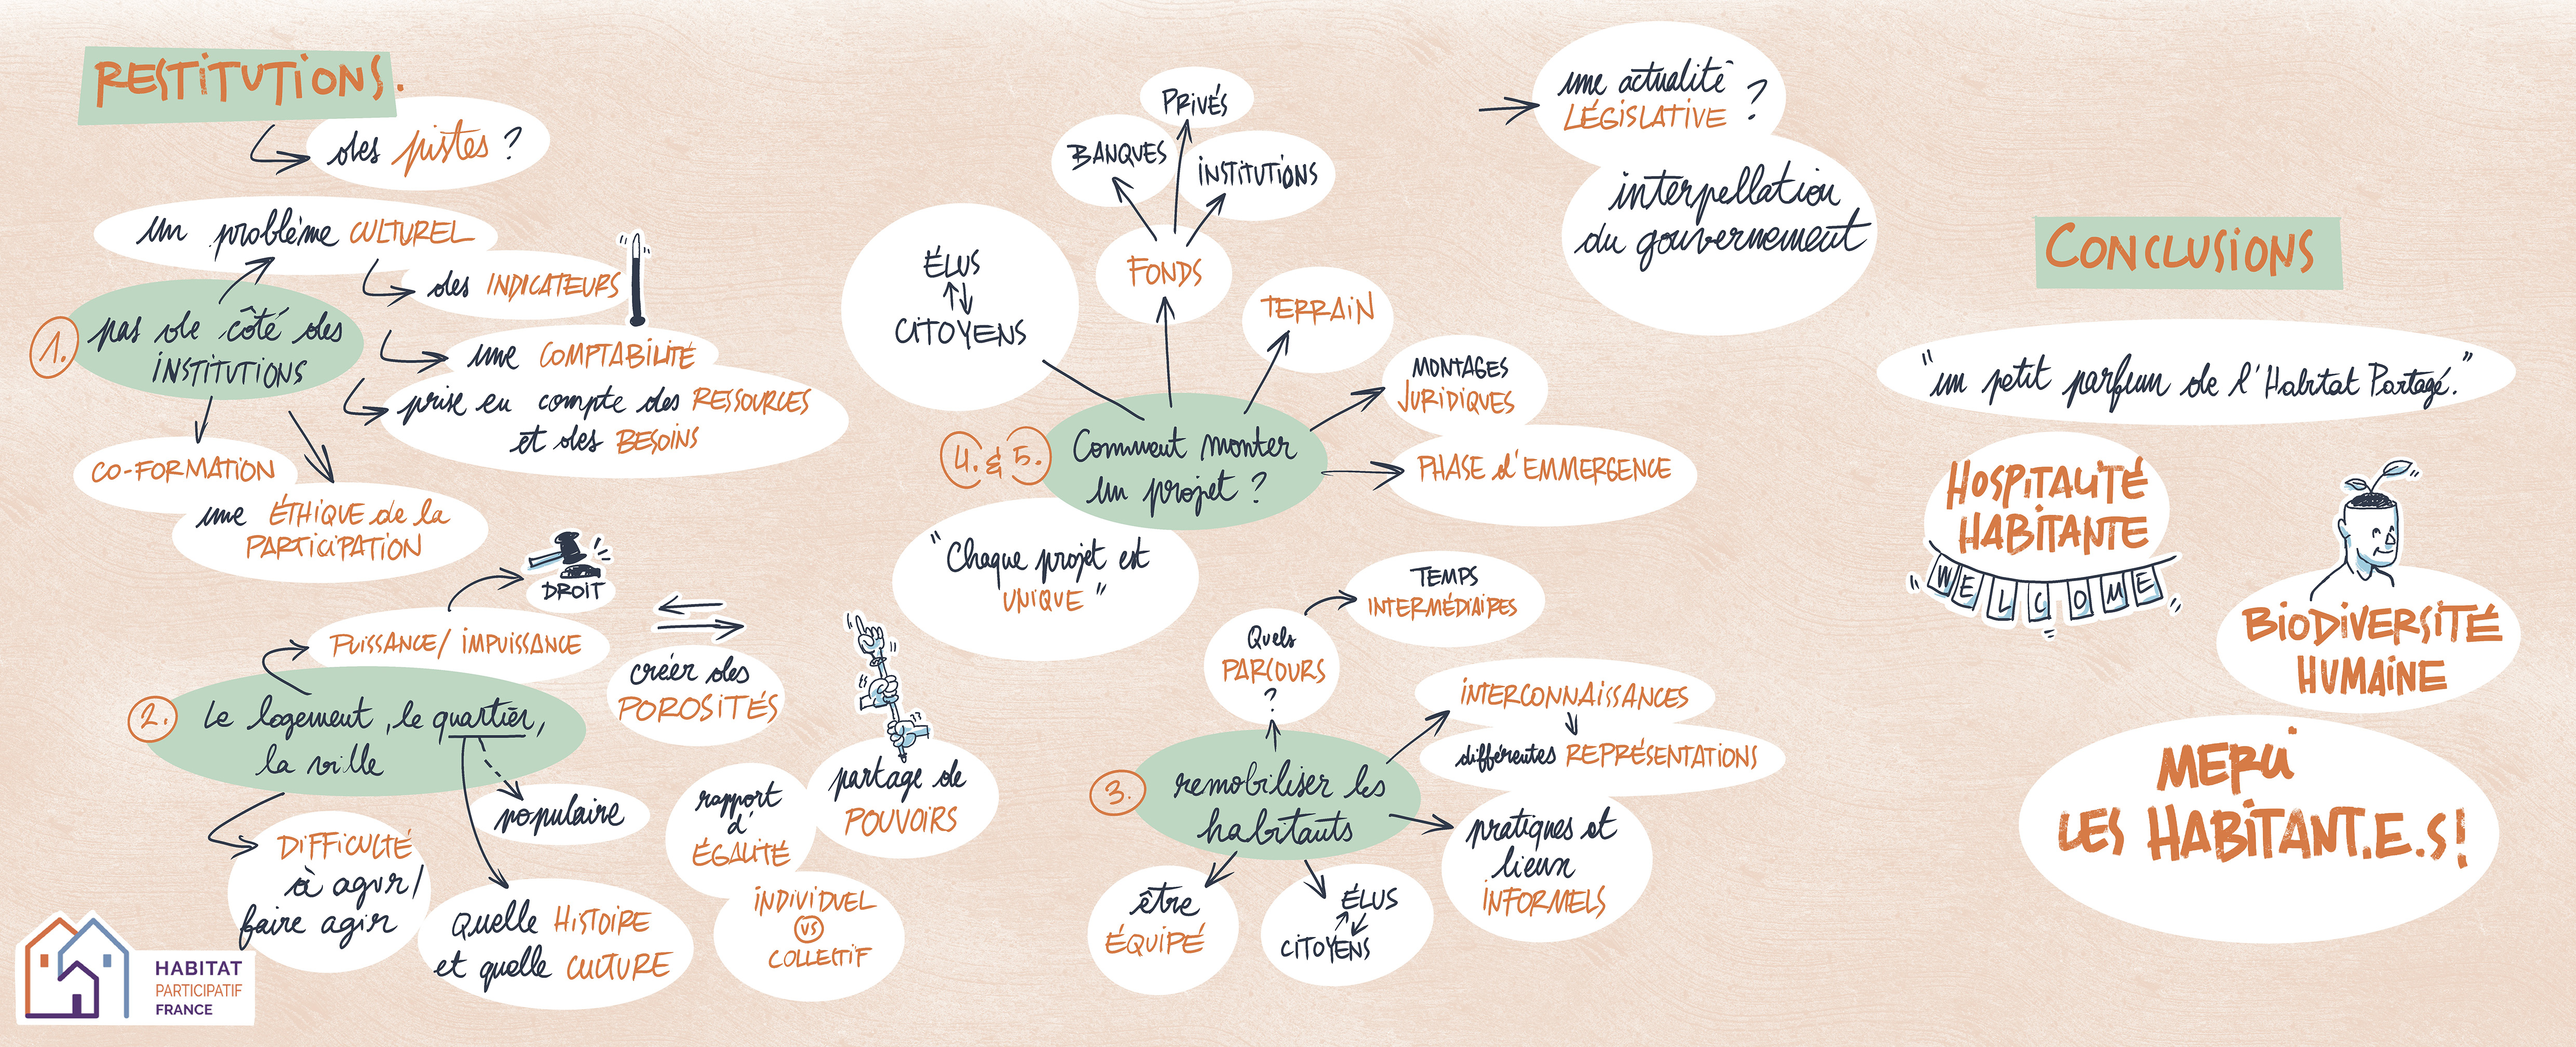 RESTITUTIONS.
des pistes ?
un problème CULTUREL
des INDICATEURS
1. pas de côté des
INSTITUTIONS
une COMPTABILITÉ
prise en compte des RESSOURCES
et des BESOINS
CO-FORMATION
une ÉTHIQUE de la
PARTICIPATION
DROIT
PUISSANCE/ IMPUISSANCE
2. Le logement, le quartier,
la ville
créer des
POROSITÉS
populaire
DIFFICULTÉ
à agir/
faire agir
Quelle HISTOIRE
et quelle CULTURE
rapport
d'
ÉGALITÉ
partage de
POUVOIRS
INDIVIDUEL
VS
COLLECTIF
HABITAT
PARTICIPATIF
FRANCE
PRIVÉS
BANQUES
INSTITUTIONS
FONDS
ÉLUS
CITOYENS
TERRAIN
MONTAGES
JURIDIQUES
4. & 5. Comment monter
un projet ?
PHASE d'EMMERGENCE
"Chaque projet est
UNIQUE"
TEMPS
INTERMÉDIAIRES
Quels
PARCOURS
?
INTERCONNAISSANCES
différentes REPRÉSENTATIONS
3. remobiliser les
habitants
pratiques et
lieux
INFORMELS
être
ÉQUIPÉ
ÉLUS
CITOYENS
une actualité
LÉGISLATIVE ?
interpellation
du gouvernement
CONCLUSIONS
"un petit parfum de l'Habitat Partagé."
HOSPITALITÉ
HABITANTE
WELCOME
BIODIVERSITÉ
HUMAINE
MERCI
LES HABITANT.E.S!